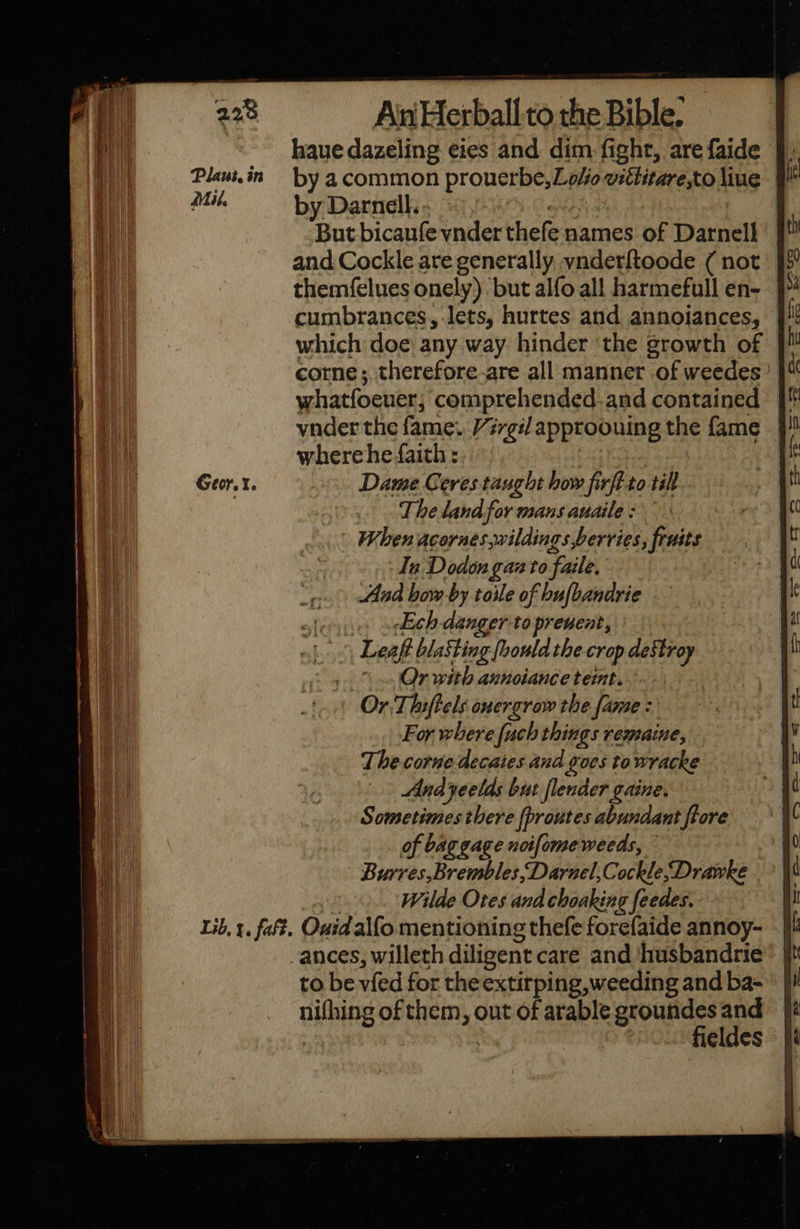 228 An Herball to the Bible.
haue dazeling eies and dim ſight, are ſaide
Plaut. in by a common prouerbe, Lolio victitare, to liue
Mil. by Darnell.
But bicauſe vnder theſe names of Darnell
and Cockle are generally vnderſtoode (not
themſelues onely) but alſo all harmefull en-
cumbrances, lets, hurtes and annoiances,
which doe any way hinder the growth of
corne; therefore are all manner of weedes
whatſoeuer, comprehended and contained
vnder the ſame. Virgil approouing the ſame
where he ſaith:
Geor. 1. Dame Ceres taught how firſt to till
The land for mans auaile:
When acornes, wildings, berries, fruits
In Dodon gan to faile.
And how by toile of huſbandrie
Ech danger to preuent,
Leaſt blaſting ſhould the crop deſtroy
Or with annoiance teint.
Or Thiſtels ouergrow the ſame:
For where ſuch things remaine,
The corne decaies and goes to wracke
And yeelds but ſlender gaine.
Sometimes there ſproutes abundant ſtore
of baggage noiſome weeds,
Burres, Brembles, Darnel, Cockle, Drawke
Wilde Otes and choaking ſeedes.
Lib. 1. faſt. Ouid alſo mentioning theſe foreſaide annoy-
ances, willeth diligent care and husbandrie
to be vſed for the extirping, weeding and ba-
niſhing of them, out of arable groundes and
fieldes